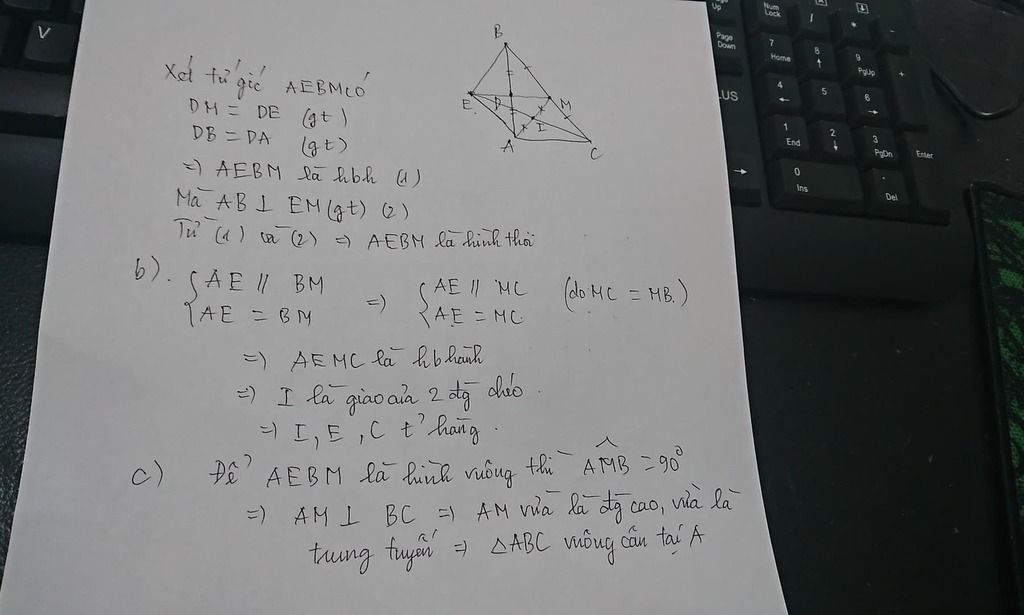 B
E
D
M
I
A
C
Xét tứ giác AEBM có
DM = DE (gt)
DB = DA (gt)
=) AEBM là hbh (1)
Mà AB ⊥ EM (gt) (2)
Từ (1) và (2) => AEBM là hình thoi
b). { AE // BM => { AE // MC (do MC = MB.)
AE = BM AE = MC.
=) AEMC là hbhành
=) I là giao của 2 đg chéo.
=) I, E, C t' hàng.
c) Để AEBM là hình vuông thì AMB = 90°
=) AM ⊥ BC => AM vừa là đg cao, vừa là
trung tuyến => △ABC vuông cân tại A
V
Page Up
Page Down
PLUS
Num Lock
/
*
-
7 Home
8 ↑
9 PgUp
+
4 ←
5
6 →
1 End
2 ↓
3 PgDn
Enter
→
0 Ins
. Del